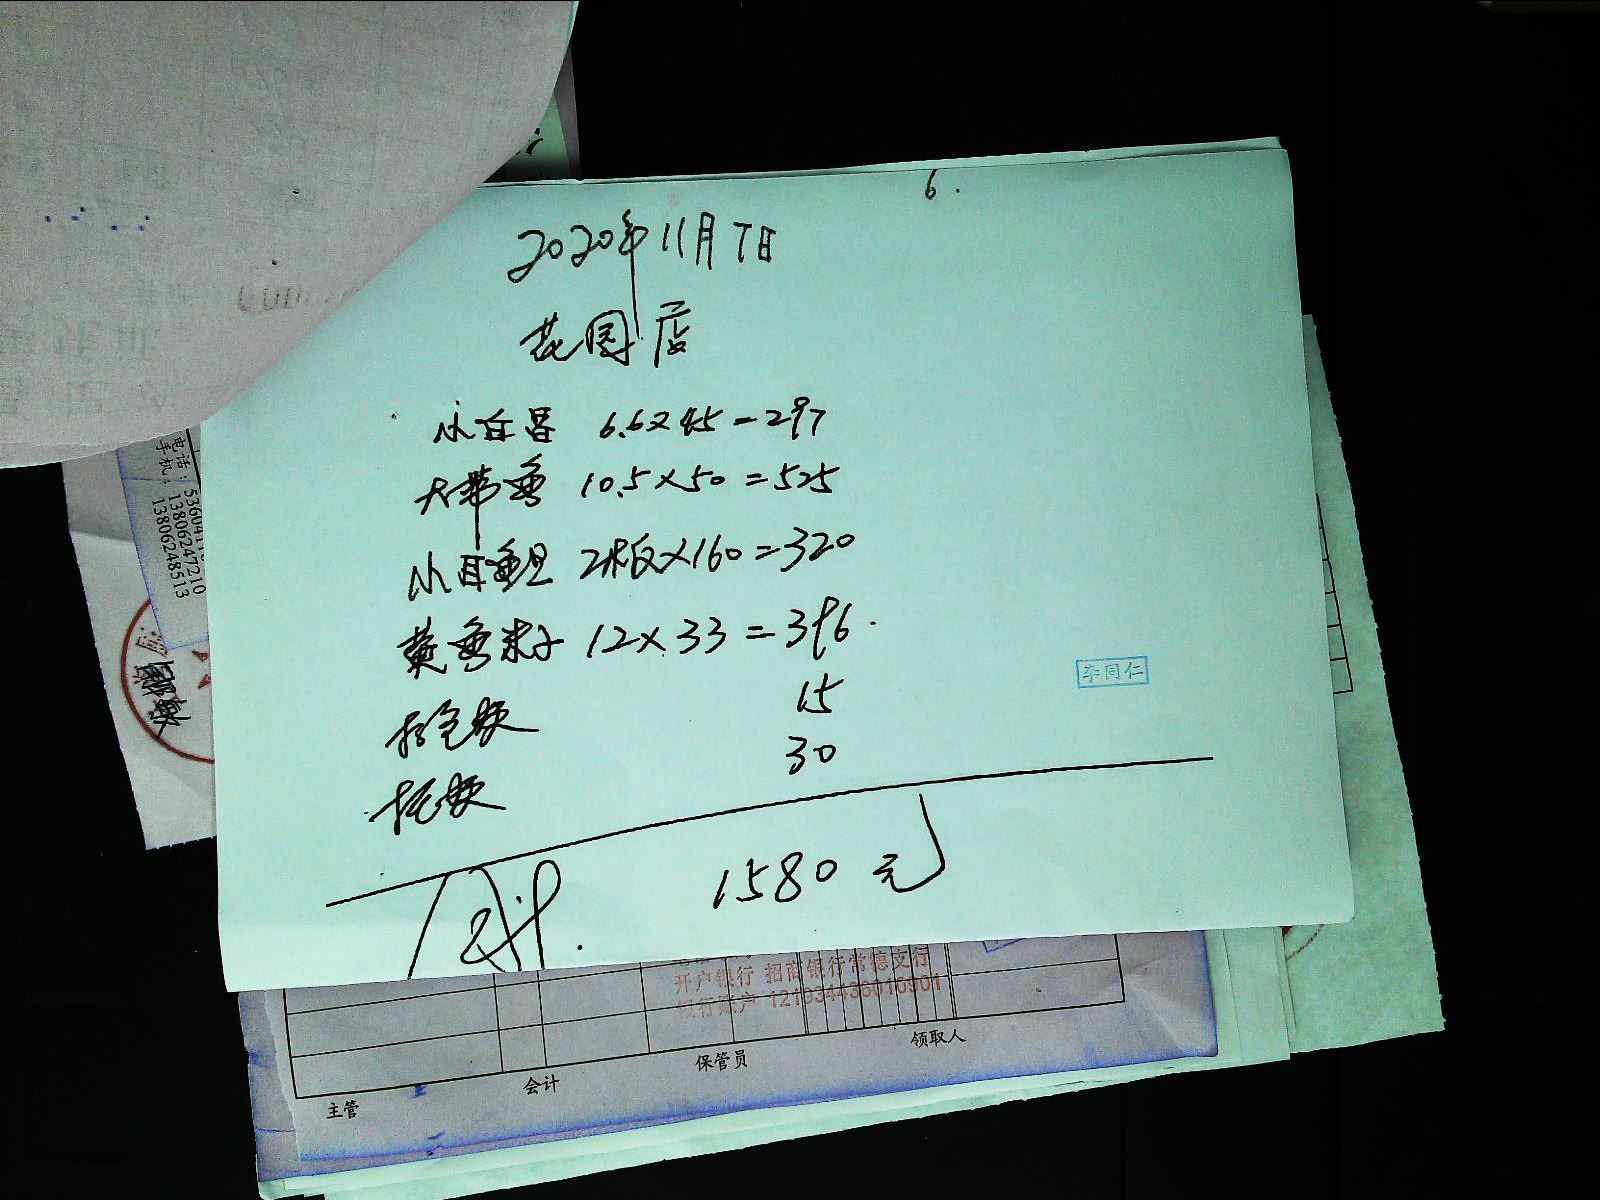 6.
2020年11月7日
花园店
小白昌 6.6×45=297
大带鱼 10.5×50=525
小耳鱼 2板×160=320
黄鱼末子 12×33=396.
15
30
1580元
李同仁
电话:
手机: 13806247210
13806248513
开户银行 招商银行常德支行
银行账户
领取人
保管员
会计
主管